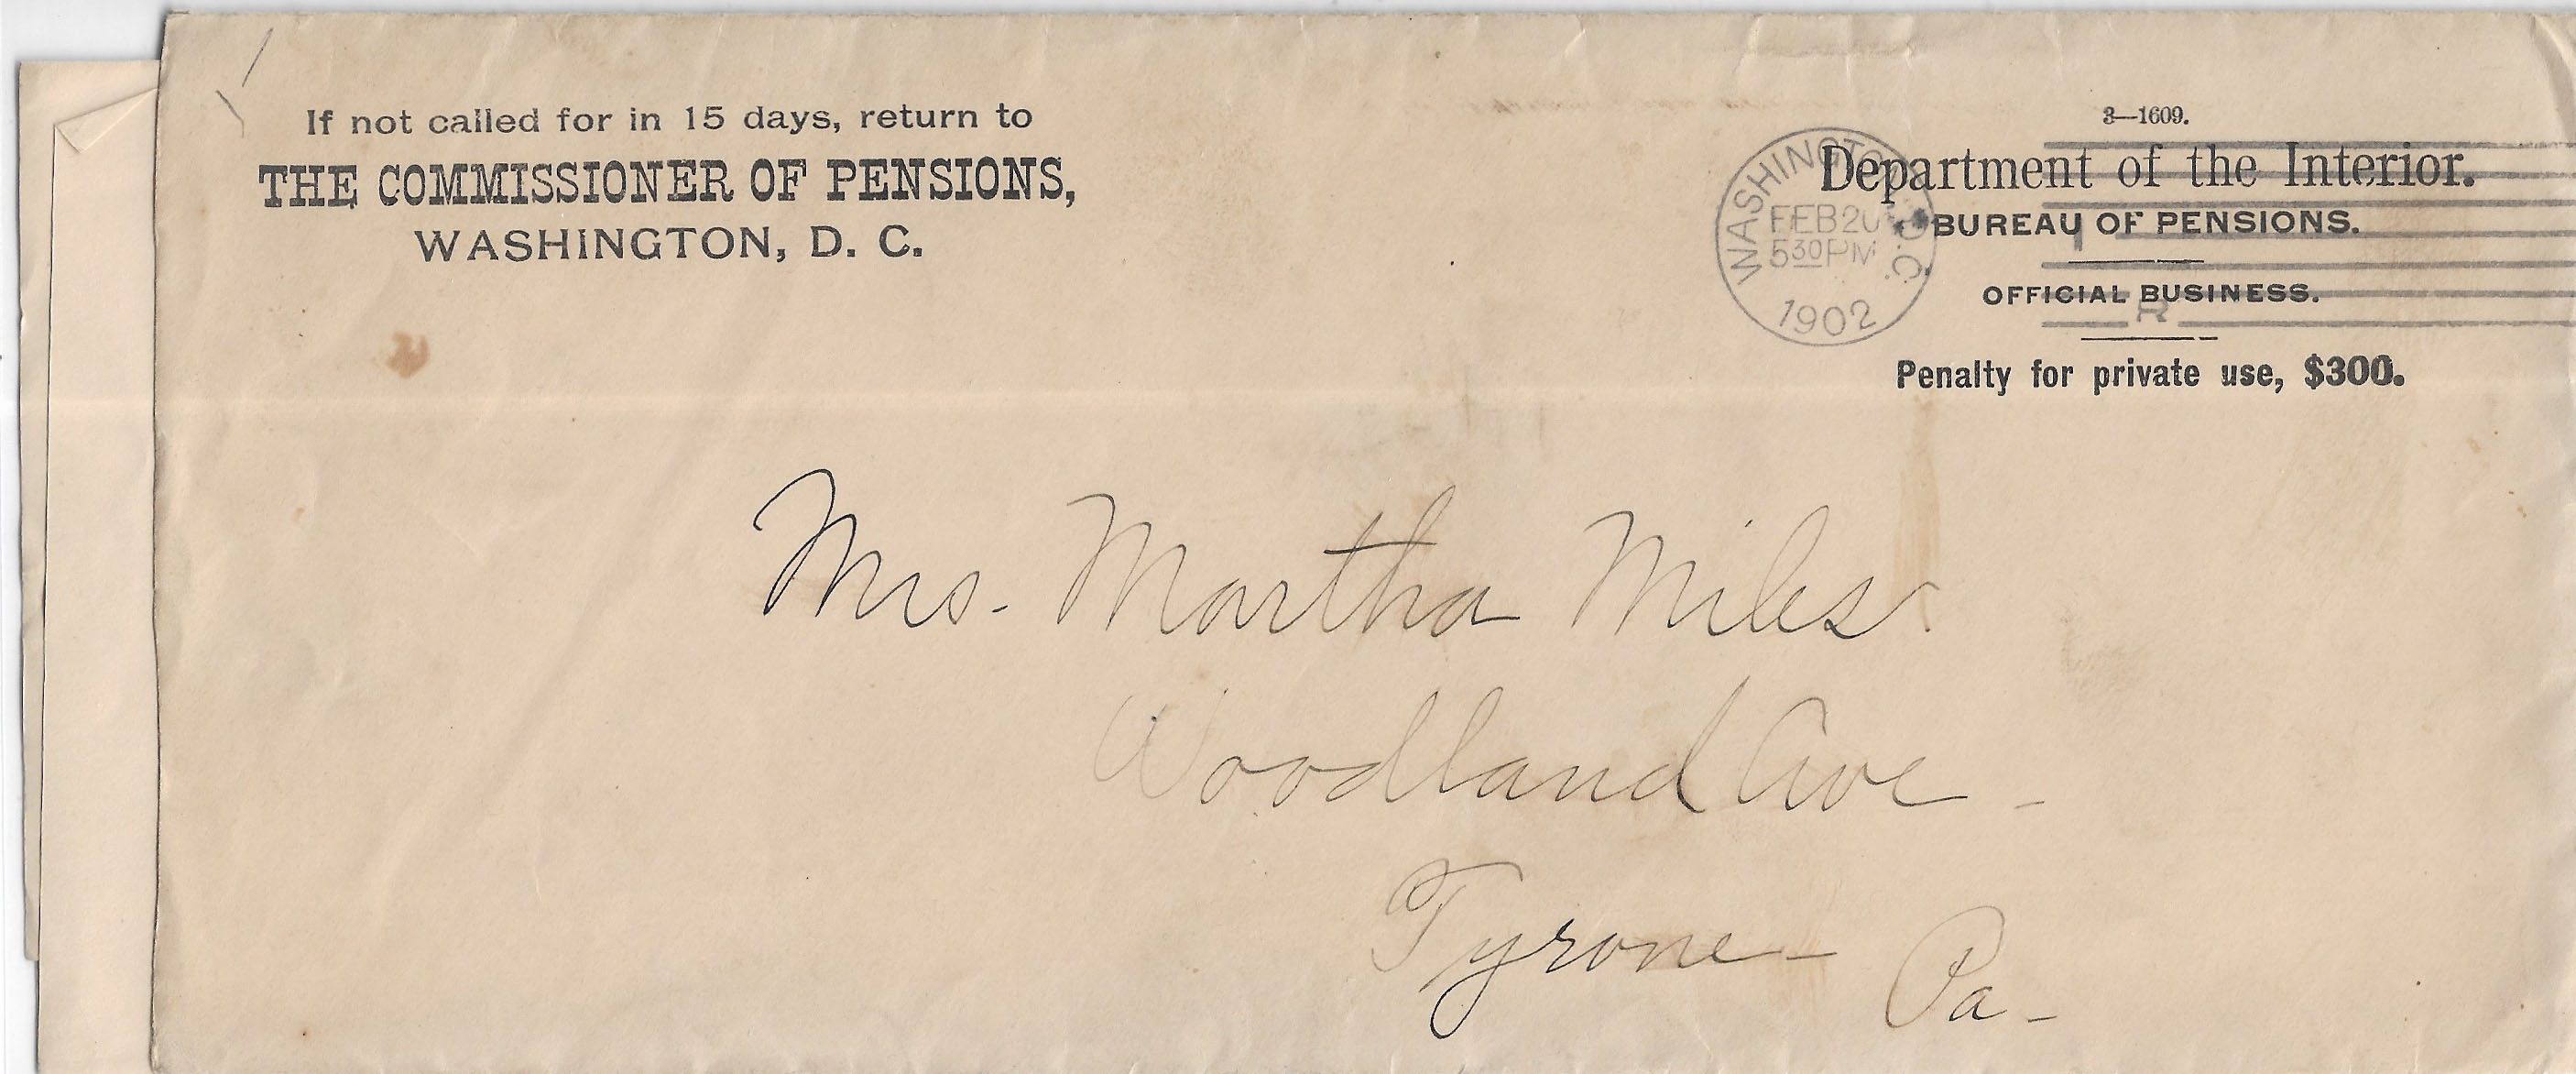 If not called for in 15 days, return to
THE COMMISSIONER OF PENSIONS,
WASHINGTON, D. C.
3—1609.
Department of the Interior.
BUREAU OF PENSIONS.
OFFICIAL BUSINESS.
Penalty for private use, $300.
WASHINGTON, D.C.
FEB 20
5 30 PM
1902
1
R
Mrs. Martha Miles.
Woodland Ave -
Tyrone - Pa -